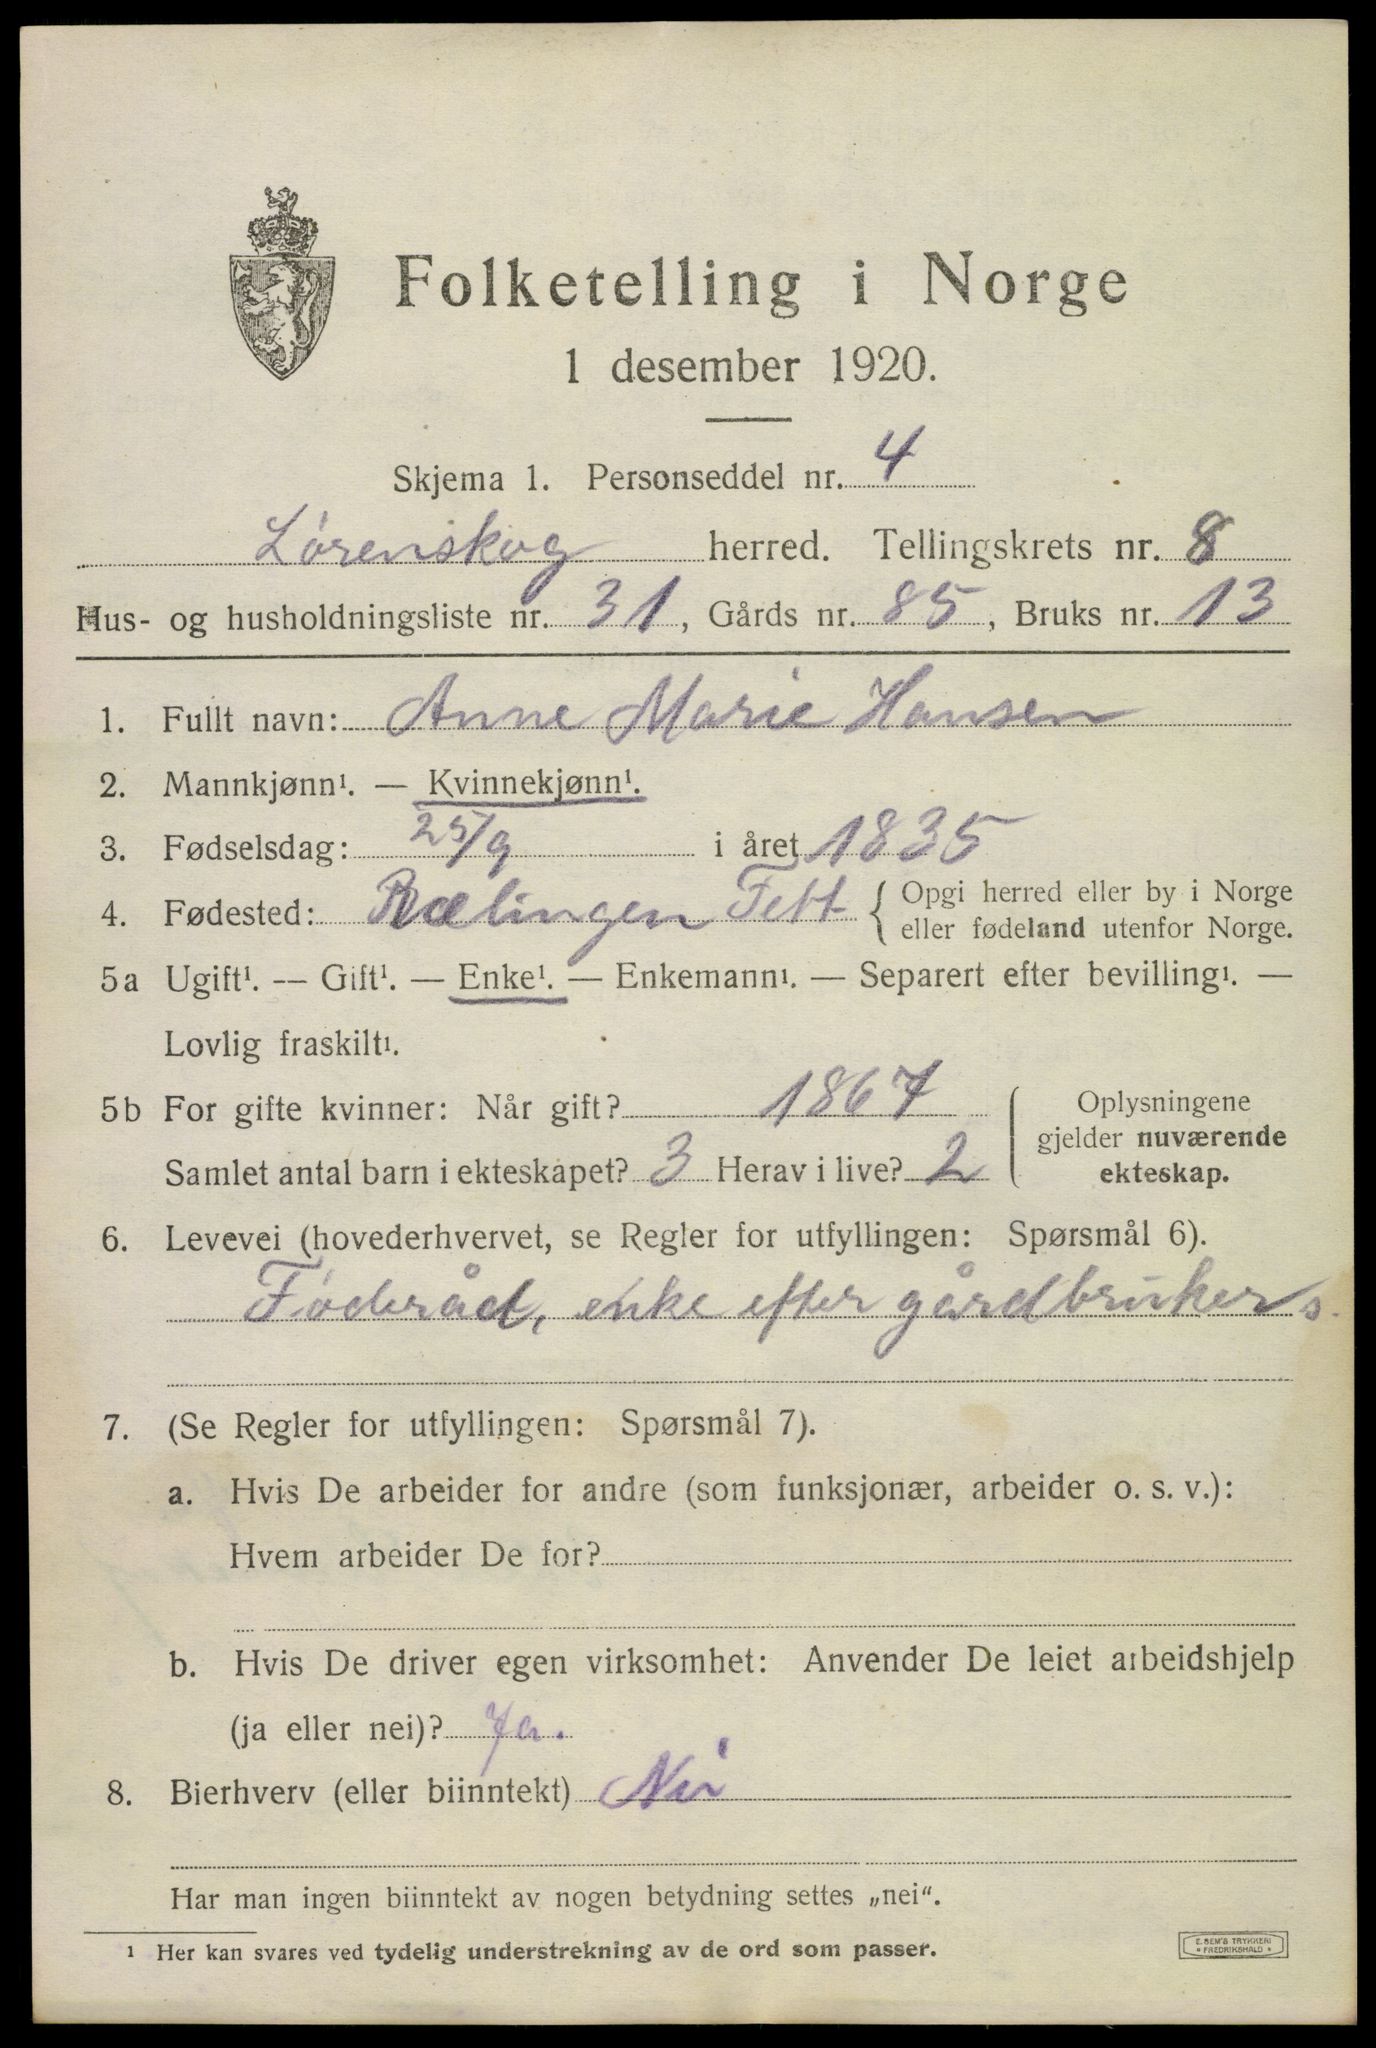 Folketelling i Norge
1 desember 1920.
Skjema 1. Personseddel nr. 4
Lørenskog herred. Tellingskrets nr. 8
Hus- og husholdningsliste nr. 31, Gårds nr. 85, Bruks nr. 13
1. Fullt navn: Anne Marie Hansen
2. Mannkjønn¹. — Kvinnekjønn¹.
3. Fødselsdag: 25/9 i året 1835
4. Fødested: Rælingen Fett { Opgi herred eller by i Norge
eller fødeland utenfor Norge.
5a Ugift¹. — Gift¹. — Enke¹. — Enkemann¹. — Separert efter bevilling¹. —
Lovlig fraskilt¹.
5b For gifte kvinner: Når gift? 1867
Samlet antal barn i ekteskapet? 3 Herav i live? 2
Oplysningene
gjelder nuværende
ekteskap.
6. Levevei (hovederhvervet, se Regler for utfyllingen: Spørsmål 6).
Føderåd, enke efter gårdbruker s.
7. (Se Regler for utfyllingen: Spørsmål 7).
a. Hvis De arbeider for andre (som funksjonær, arbeider o. s. v.):
Hvem arbeider De for?
b. Hvis De driver egen virksomhet: Anvender De leiet arbeidshjelp
(ja eller nei)? Ja.
8. Bierhverv (eller biinntekt) Nei
Har man ingen biinntekt av nogen betydning settes „nei“.
¹ Her kan svares ved tydelig understrekning av de ord som passer.
E. SEM'S TRYKKERI
* FREDRIKSHALD *